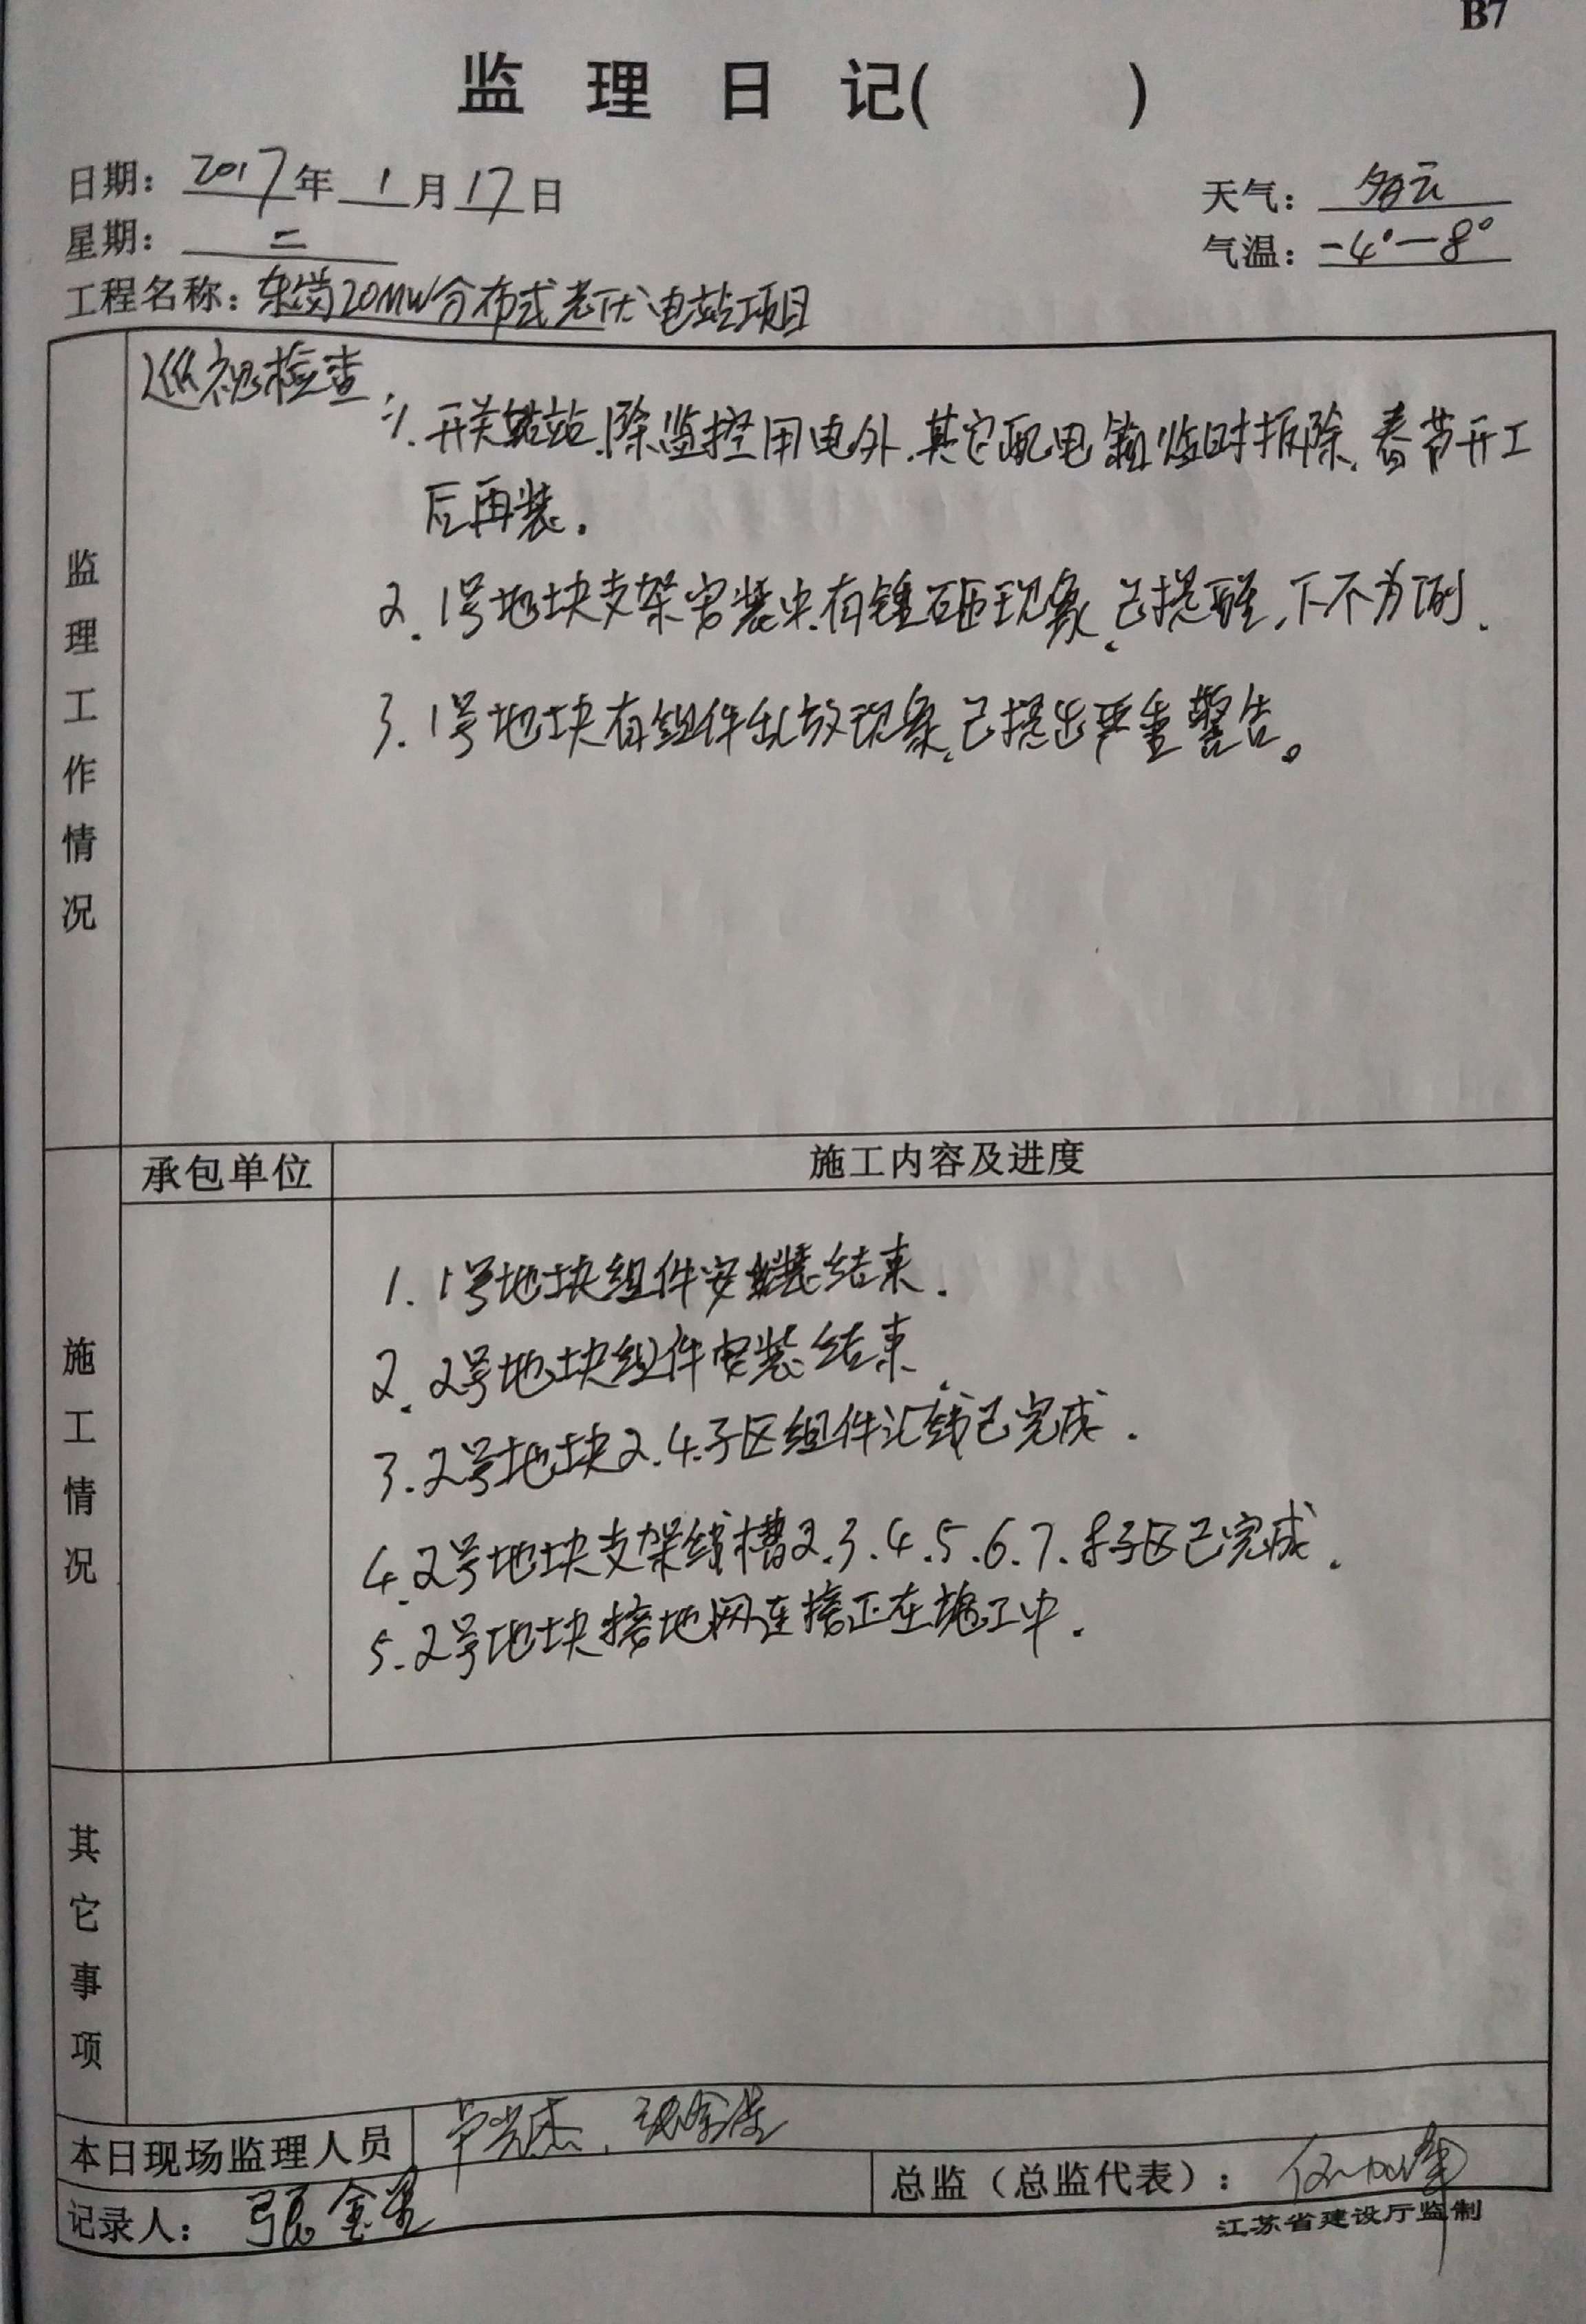 B7
监 理 日 记( )
日期: 2017年 1 月 17 日
天气: 多云
星期: 二
气温: -4°-8°
工程名称: 东岗20MW分布式光伏电站项目
巡视检查:
1. 开关站.除监控用电外.其它配电箱临时拆除.春节开工
后再装.
2. 1号地块支架安装中.有锤砸现象.已提醒.下不为例.
3. 1号地块有组件乱放现象.已提出严重警告。
监理工作情况
承包单位
施工内容及进度
1. 1号地块组件安装结束.
2. 2号地块组件安装结束.
3. 2号地块2.4.子区组件汇线已完成.
4. 2号地块支架线槽2.3.4.5.6.7.8子区已完成.
5. 2号地块接地网连接正在施工中.
施工情况
其它事项
本日现场监理人员
总监（总监代表）:
记录人: 张金
江苏省建设厅监制